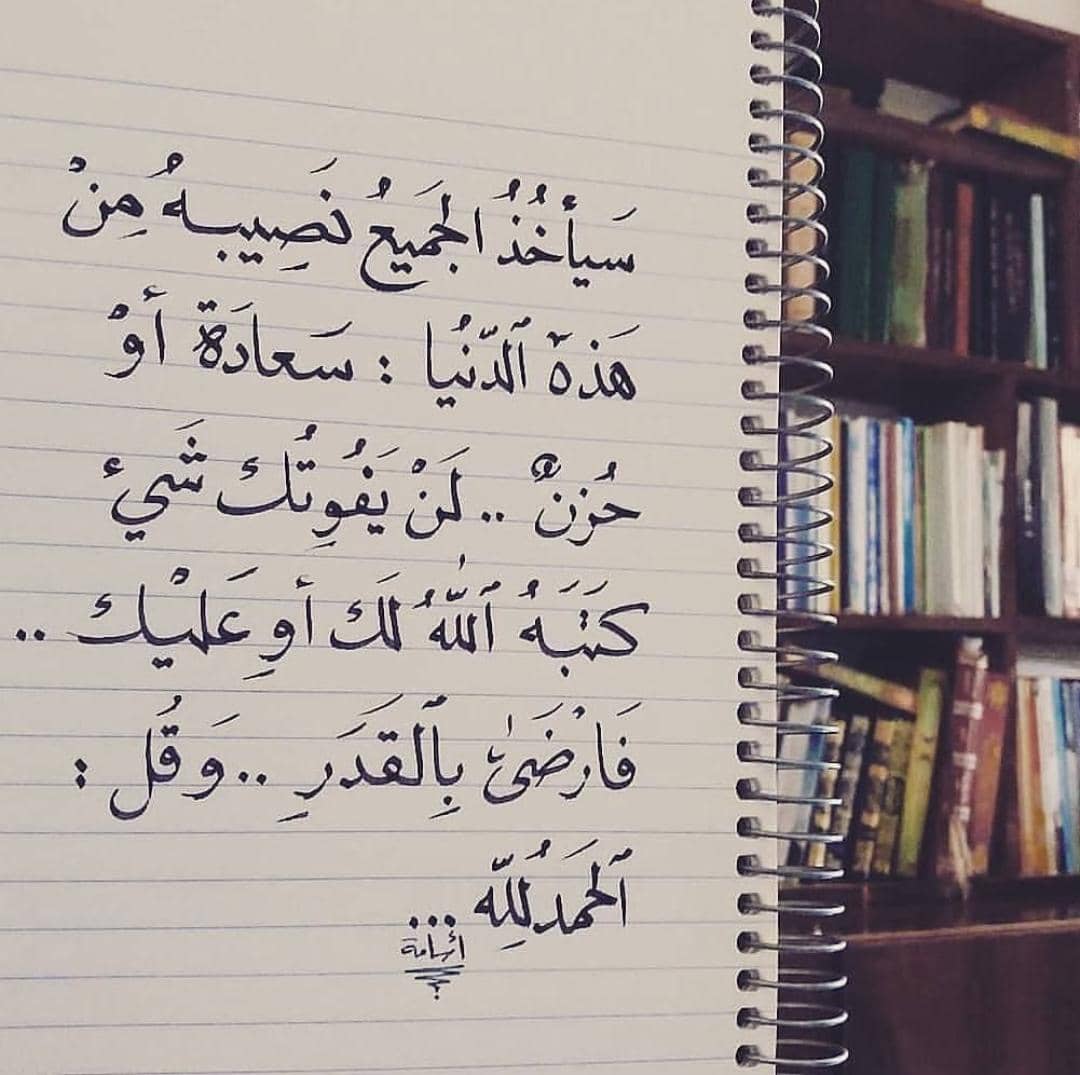 سَيأخُذُ الجَميعُ نَصِيبهُ مِنْ
هَذهْ ٱلدّنُيا : سَعادَة أوْ
حُزنٌ .. لَنْ يَفُوتُك شَيء
كَتَبهُ ٱللّٰهُ لَكَ أوِ عَليْك ..
فَارْضَىٰ بِٱلقَدَرِ .. وَ قُل :
ٱلحَمدُ لِلّه ...
أسامة